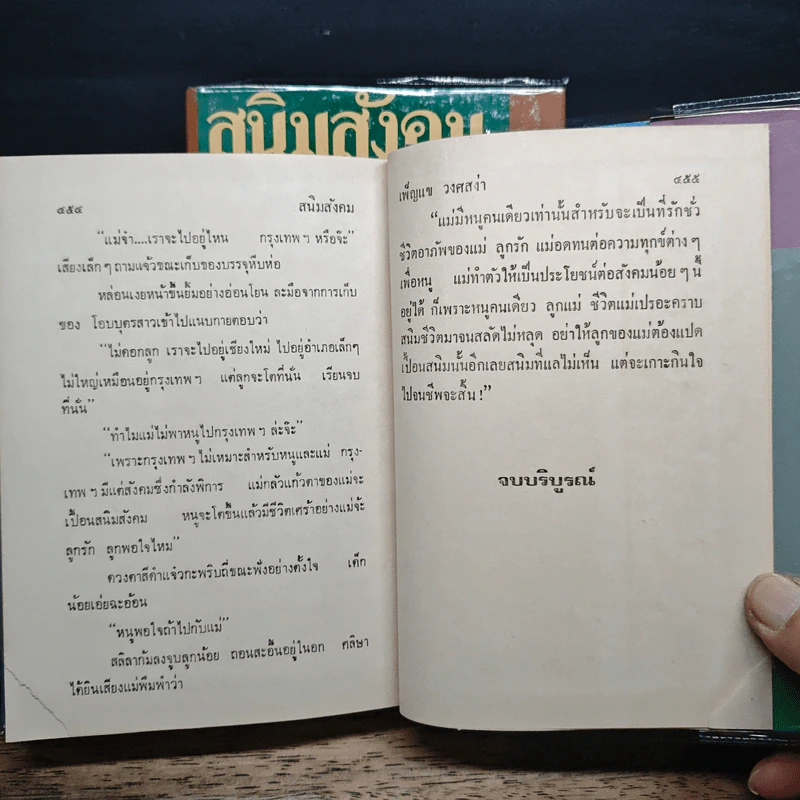 สนิมสังคม
๔๕๔ สนิมสังคม
“แม่จ๋า....เราจะไปอยู่ไหน กรุงเทพฯ หรือจ๊ะ”
เสียงเล็กๆ ถามแจ้วขณะเก็บของบรรจุหีบห่อ
หล่อนเงยหน้าขึ้นยิ้มอย่างอ่อนโยน ละมือจากการเก็บ
ของ โอบบุตรสาวเข้าไปแนบกายตอบว่า
“ไม่ดอกลูก เราจะไปอยู่เชียงใหม่ ไปอยู่อำเภอเล็กๆ
ไม่ใหญ่เหมือนอยู่กรุงเทพฯ แต่ลูกจะโตที่นั่น เรียนจบ
ที่นั่น”
“ทำไมแม่ไม่พาหนูไปกรุงเทพฯ ล่ะจ๊ะ”
“เพราะกรุงเทพฯ ไม่เหมาะสำหรับหนูและแม่ กรุง-
เทพฯ มีแต่สังคมซึ่งกำลังพิการ แม่กลัวแก้วตาของแม่จะ
เปื้อนสนิมสังคม หนูจะโตขึ้นแล้วมีชีวิตเศร้าอย่างแม่จ้ะ
ลูกรัก ลูกพอใจไหม”
ดวงตาสีดำแจ๋วกะพริบถี่ขณะฟังอย่างตั้งใจ เด็ก
น้อยเอ่ยฉะอ้อน
“หนูพอใจถ้าไปกับแม่”
สลิลาก้มลงจูบลูกน้อย ถอนสะอื้นอยู่ในอก ศลิษา
ได้ยินเสียงแม่พึมพำว่า
เพ็ญแข วงศสง่า ๔๕๕
“แม่มีหนูคนเดียวเท่านั้นสำหรับจะเป็นที่รักชั่ว
ชีวิตอาภัพของแม่ ลูกรัก แม่อดทนต่อความทุกข์ต่างๆ
เพื่อหนู แม่ทำตัวให้เป็นประโยชน์ต่อสังคมน้อยๆ นี้
อยู่ได้ ก็เพราะหนูคนเดียว ลูกแม่ ชีวิตแม่เปรอะคราบ
สนิมชีวิตมาจนสลัดไม่หลุด อย่าให้ลูกของแม่ต้องแปด
เปื้อนสนิมนั้นอีกเลยสนิมที่แลไม่เห็น แต่จะเกาะกินใจ
ไปจนชีพจะสิ้น !”
จบบริบูรณ์